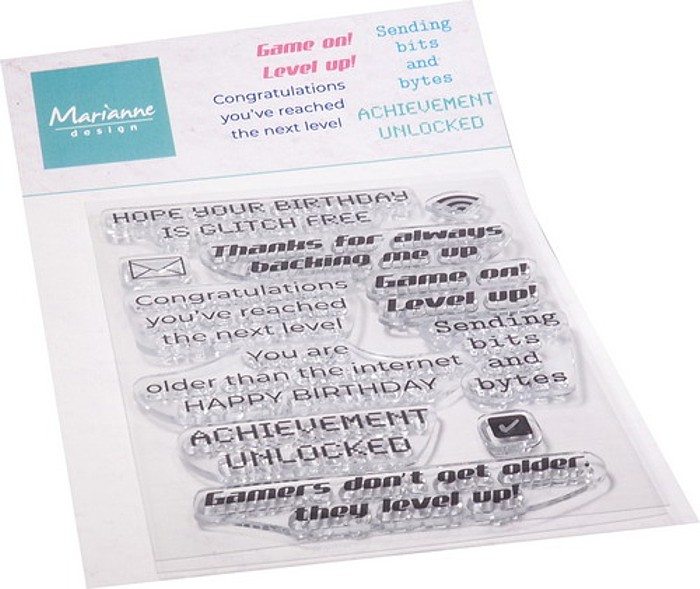 Marianne
design
Game on!
Level up!
Congratulations
you've reached
the next level
Sending
bits
and
bytes
ACHIEVEMENT
UNLOCKED
HOPE YOUR BIRTHDAY
IS GLITCH FREE
Thanks for always
backing me up
Game on!
Level up!
Congratulations
you've reached
the next level
Sending
bits
and
bytes
You are
older than the internet
HAPPY BIRTHDAY
ACHIEVEMENT
UNLOCKED
Gamers don't get older,
they level up!